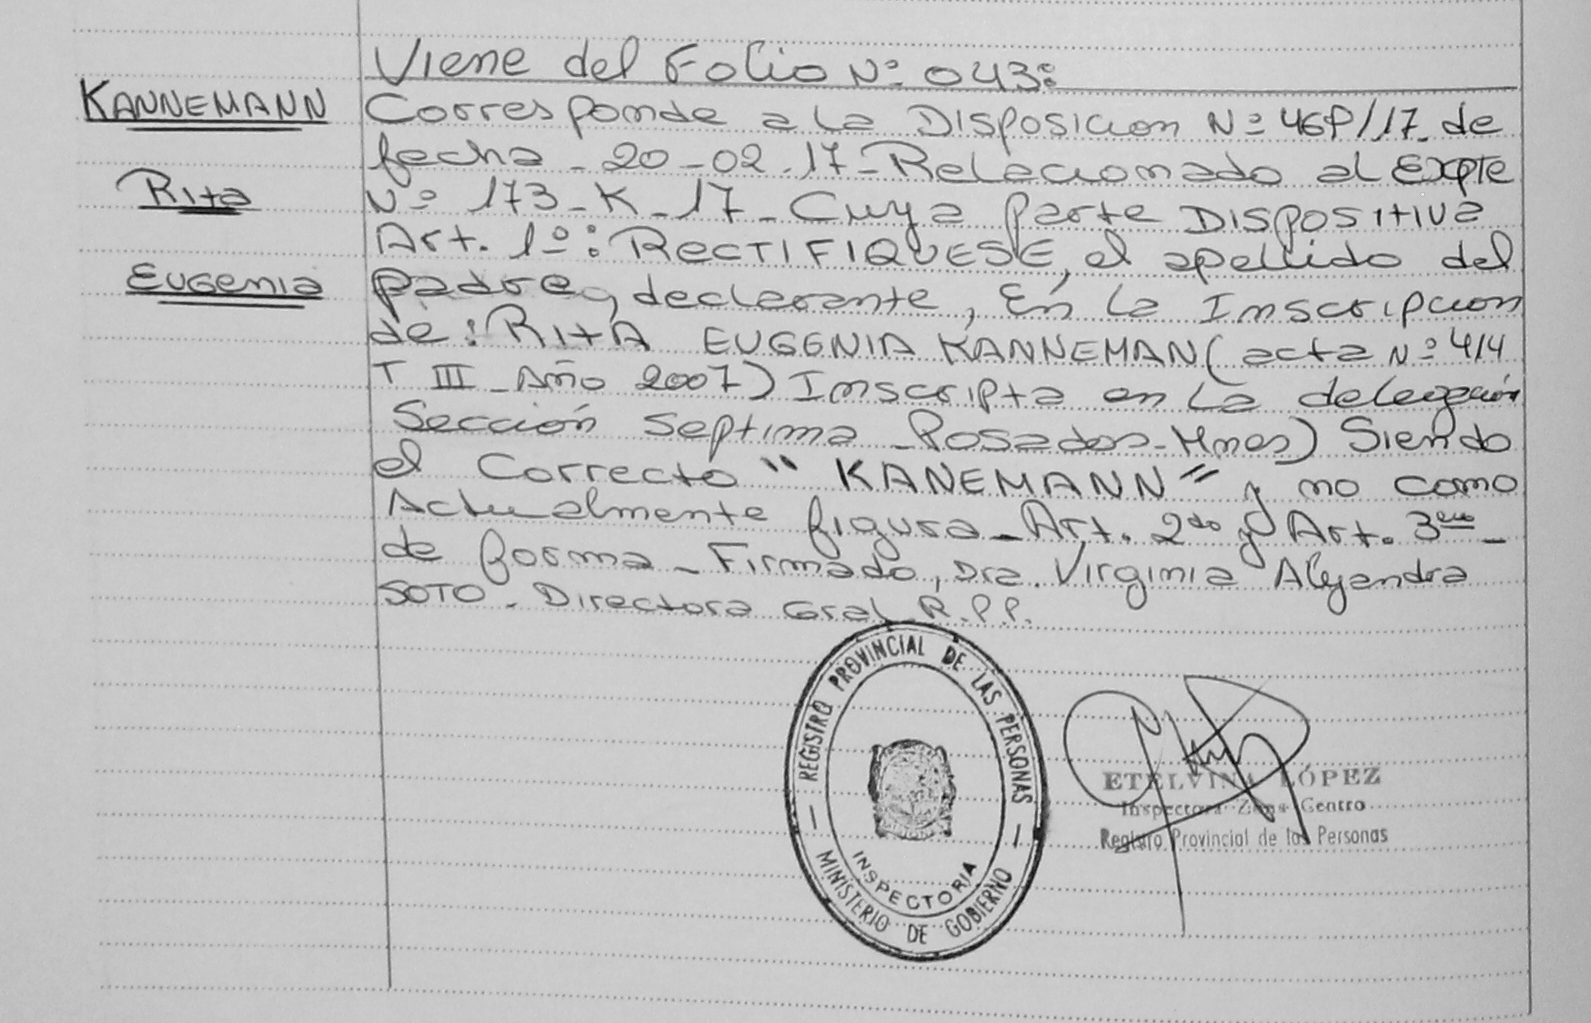 Viene del Folio Nº 043:
KANNEMANN
Rita
Eugenia
Corresponde a la Disposicion Nº 469/17 de
fecha - 20-02.17 - Relacionado al Expte
Nº 173-K-17 - Cuya parte Dispositiva
Art. 1º: RECTIFIQUESE, el apellido del
padre, declarante, En la Inscripcion
de: RITA EUGENIA KANNEMAN (acta Nº 414
T III - Año 2007) Inscripta en La delegación
Sección Septima - Posadas - Mnes) Siendo
el Correcto "KANEMANN" y no como
Actualmente figura - Art. 2do y Art. 3ero -
de forma - Firmado, Dra. Virginia Alejandra
SOTO - Directora Gral R.P.P.
REGISTRO PROVINCIAL DE LAS PERSONAS
INSPECTORIA
MINISTERIO DE GOBIERNO
ETELVINA LÓPEZ
Inspectora Zona Centro
Registro Provincial de las Personas